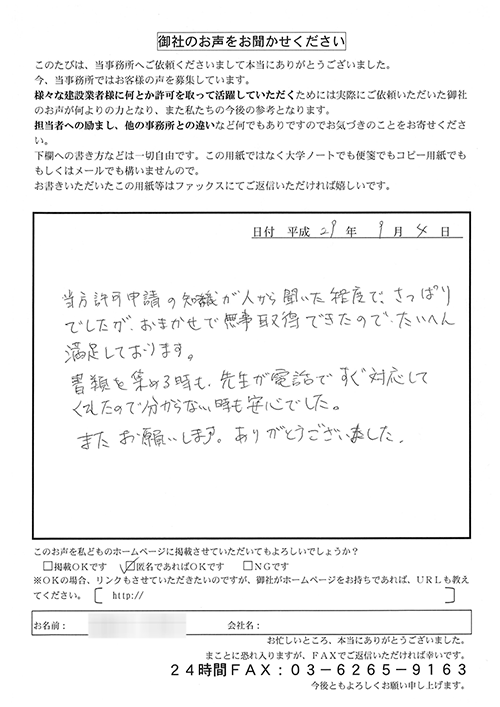 御社のお声をお聞かせください
このたびは、当事務所へご依頼くださいまして本当にありがとうございました。
今、当事務所ではお客様の声を募集しています。
様々な建設業者様に何とか許可を取って活躍していただくためには実際にご依頼いただいた御社
のお声が何よりの力となり、また私たちの今後の参考となります。
担当者への励まし、他の事務所との違いなど何でもありですのでお気づきのことをお寄せくださ
い。
下欄への書き方などは一切自由です。この用紙ではなく大学ノートでも便箋でもコピー用紙でも
もしくはメールでも構いませんので。
お書きいただいたこの用紙等はファックスにてご返信いただければ嬉しいです。
日付 平成 29 年 9 月 4 日
当方許可申請の知識が人から聞いた程度で、さっぱり
でしたが、おまかせで無事取得できたので、たいへん
満足しております。
書類を集める時も、先生が電話ですぐ対応して
くれたので分からない時も安心でした。
またお願いします。ありがとうございました。
このお声を私どものホームページに掲載させていただいてもよろしいでしょうか？
□掲載ＯＫです ☑匿名であればＯＫです □ＮＧです
※ＯＫの場合、リンクもさせていただきたいのですが、御社がホームページをお持ちであれば、ＵＲＬも教え
てください。〔 http:// 〕
お名前： 会社名：
お忙しいところ、本当にありがとうございました。
まことに恐れ入りますが、ＦＡＸでご返信いただければ幸いです。
２４時間ＦＡＸ：０３－６２６５－９１６３
今後ともよろしくお願い申し上げます。